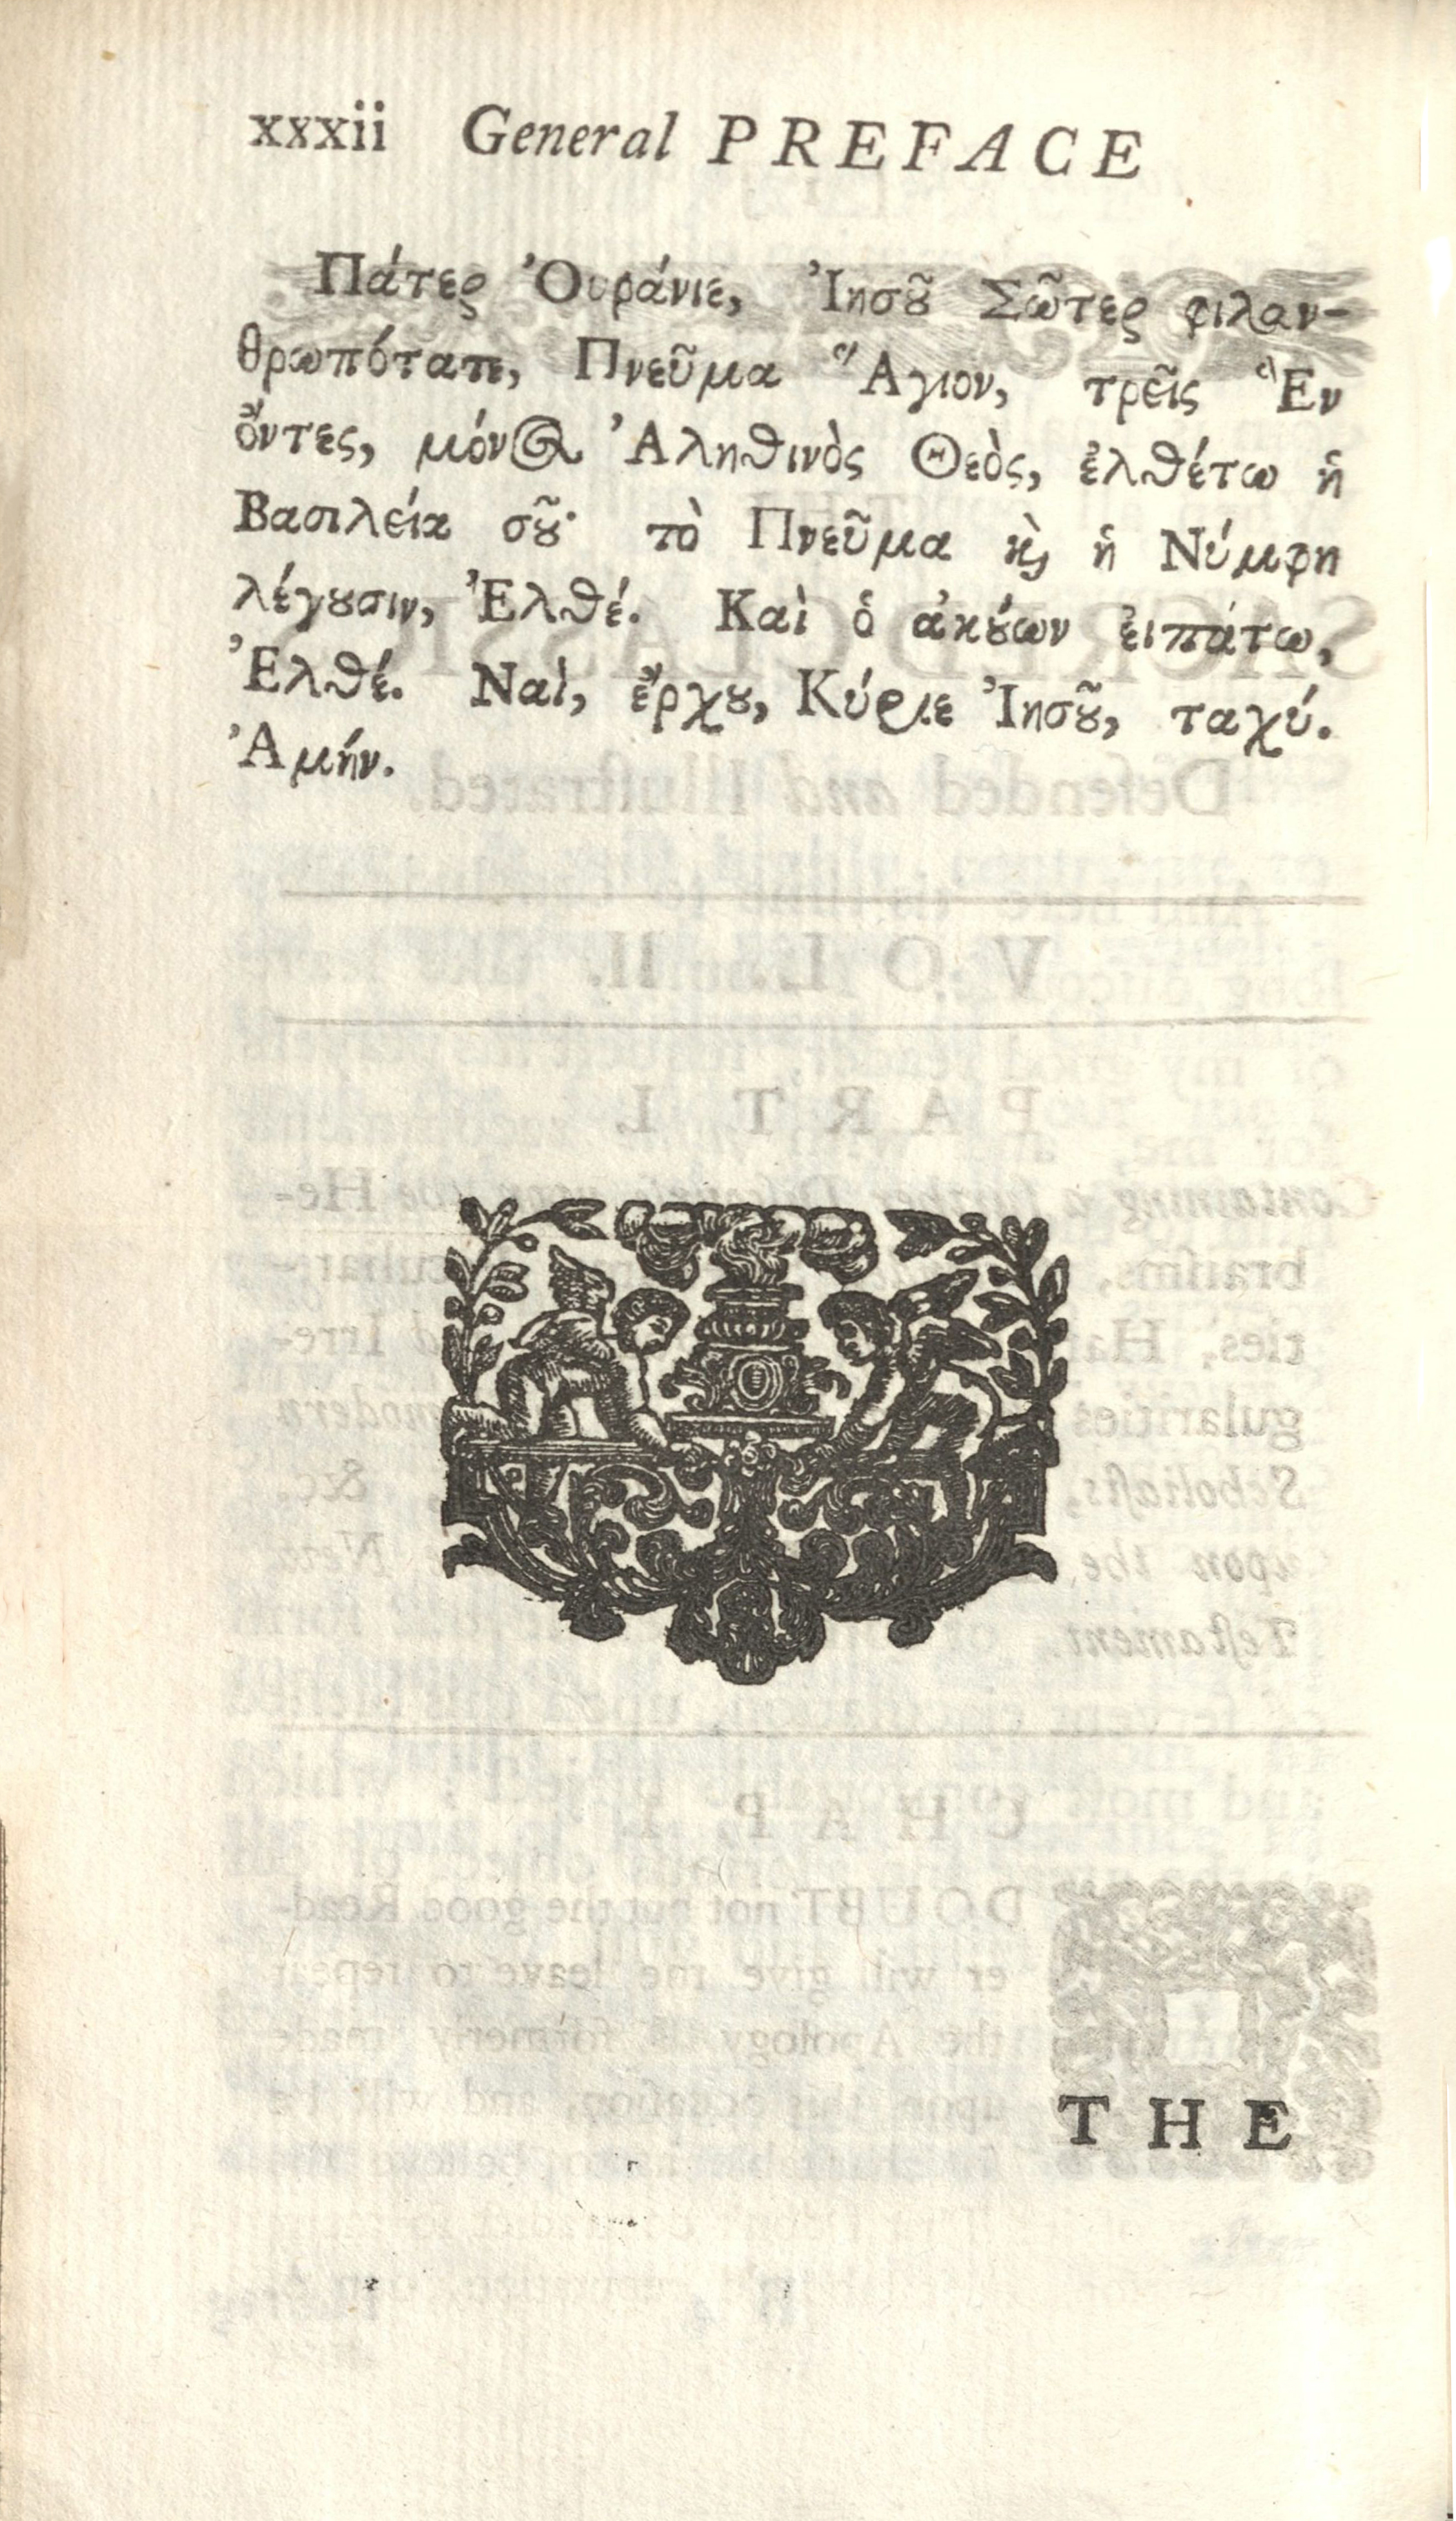 xxxii General PREFACE
Πάτερ Ὀυράνιε, Ἰησȣ͂ Σῶτερ φιλαν-
θρωπότατε, Πνεῦμα Ἅγιον, τρεῖς Ἕν
ὄντες, μόνος Ἀληθινὸς Θεὸς, ἐλθέτω ἡ
Βασιλεία σȣ͂· τὸ Πνεῦμα ϗ̀ ἡ Νύμφη
λέγȣσιν, Ἐλθέ. Καὶ ὁ ἀκȣ́ων ἐιπάτω,
Ἐλθέ. Ναὶ, ἔρχȣ, Κύριε Ἰησȣ͂, ταχύ.
Ἀμήν.
THE